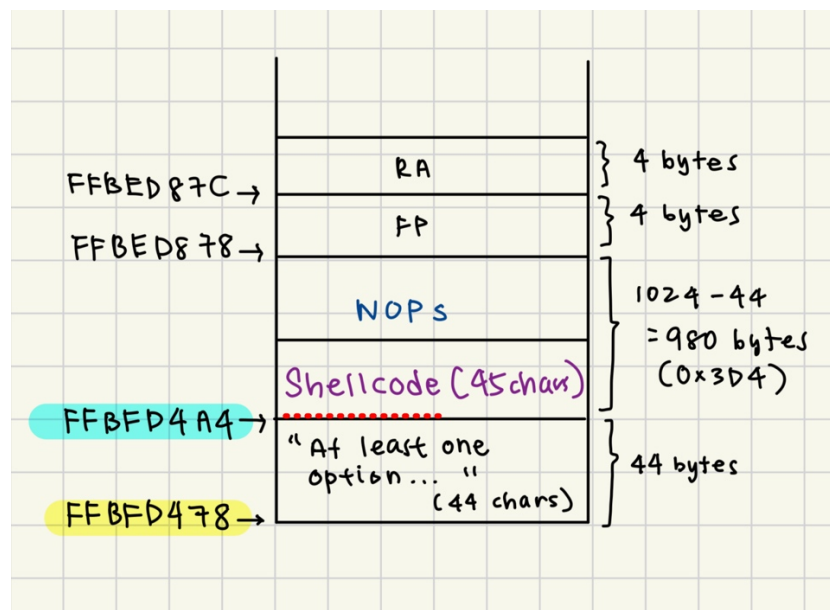 RA
4 bytes
FFBED87C →
FP
4 bytes
FFBED878 →
NOPs
1024 - 44
= 980 bytes
(0x3D4)
Shellcode (45 chars)
FFBFD4A4 →
"At least one
option... "
(44 chars)
44 bytes
FFBFD478 →